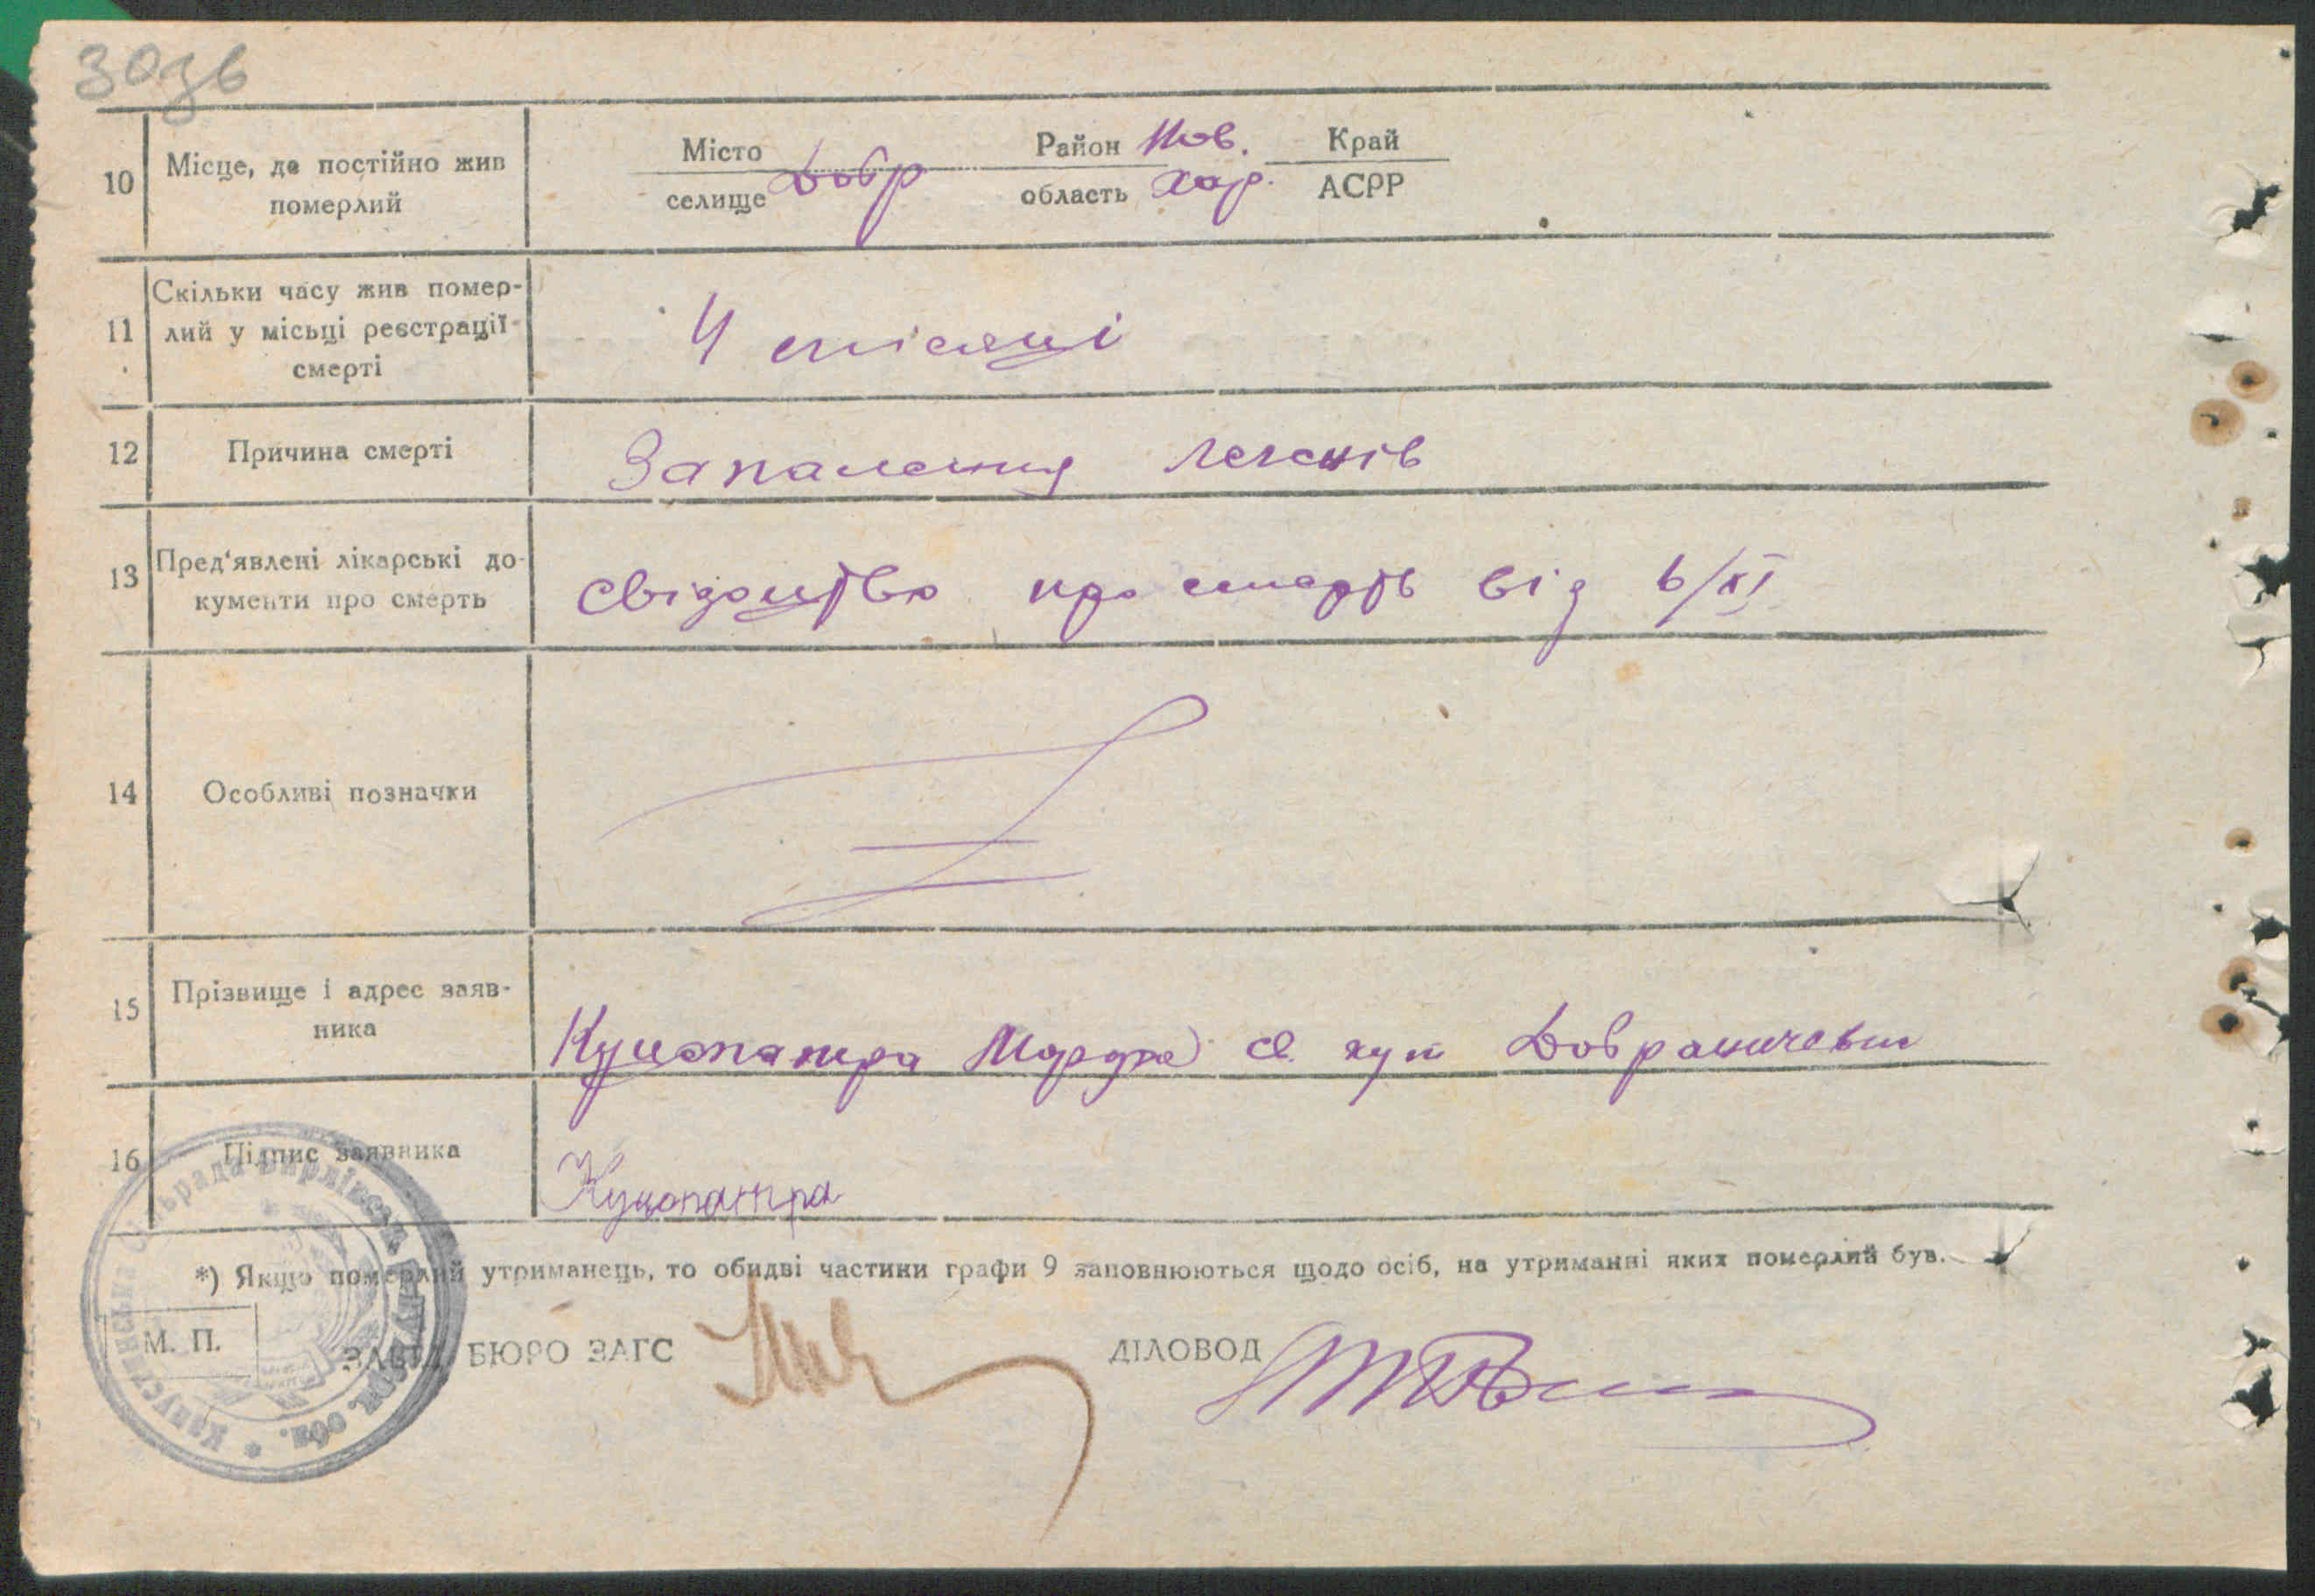 30зв
10 Місце, де постійно жив померлий
Місто селище Добр Район Нов. область Хар. Край АСРР
11 Скільки часу жив помер-
лий у місьці реєстрації
смерті
4 місяці
12 Причина смерті Запалення легенів
13 Пред'явлені лікарські до-
кументи про смерть
Свідоцтво про смерть від 6/XI
14 Особливі позначки
15 Прізвище і адрес заяв-
ника
Куцопатра с. хут
16 Підпис заявника
Куцопатра
*) Якщо померлий утриманець, то обидві частини графи 9 заповнюються щодо осіб, на утриманні яких померлий був.
М. П.
ЗАВІД. БЮРО ЗАГС ДІЛОВОД